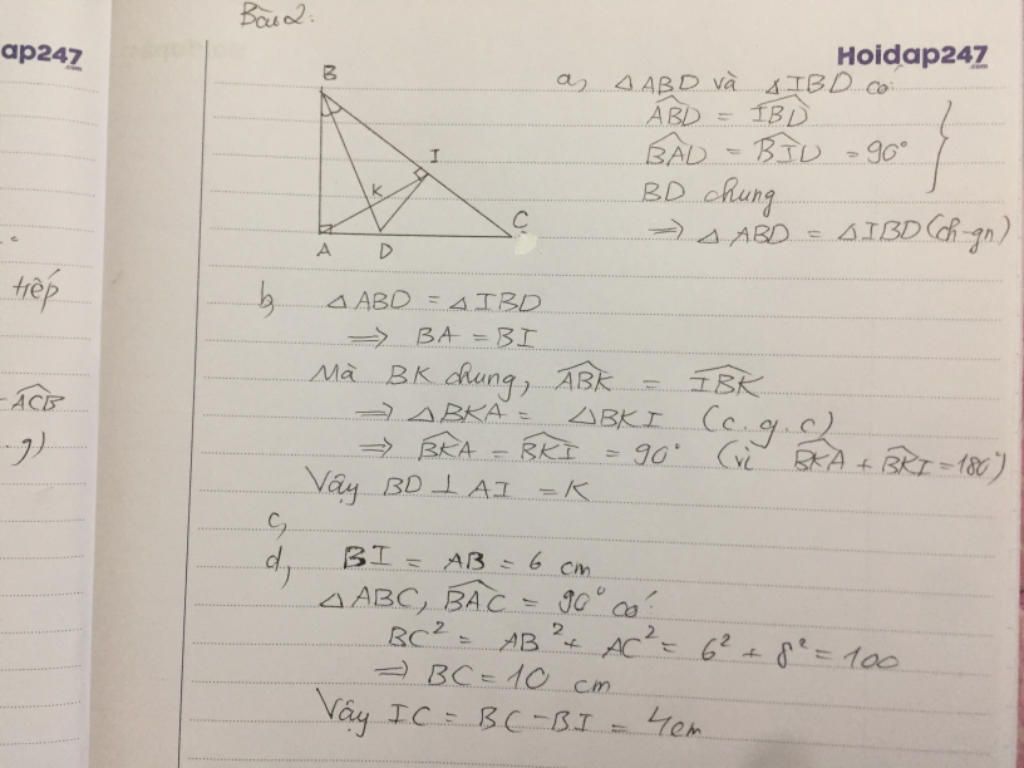 Bài 2:
ap247
.com
Hoidap247
.com
tiếp
ACB
.g)
B
I
K
A
D
C
a, △ABD và △IBD có:
ABD = IBD
BAD = BID = 90°
BD chung
⇒ △ABD = △IBD (ch-gn)
b, △ABD = △IBD
⇒ BA = BI
Mà BK chung, ABK = IBK
⇒ △BKA = △BKI (c.g.c)
⇒ BKA = BKI = 90° (vì BKA + BKI = 180°)
Vậy BD ⊥ AI = K
c,
d, BI = AB = 6 cm
△ABC, BAC = 90° có:
BC² = AB² + AC² = 6² + 8² = 100
⇒ BC = 10 cm
Vậy IC = BC - BI = 4cm